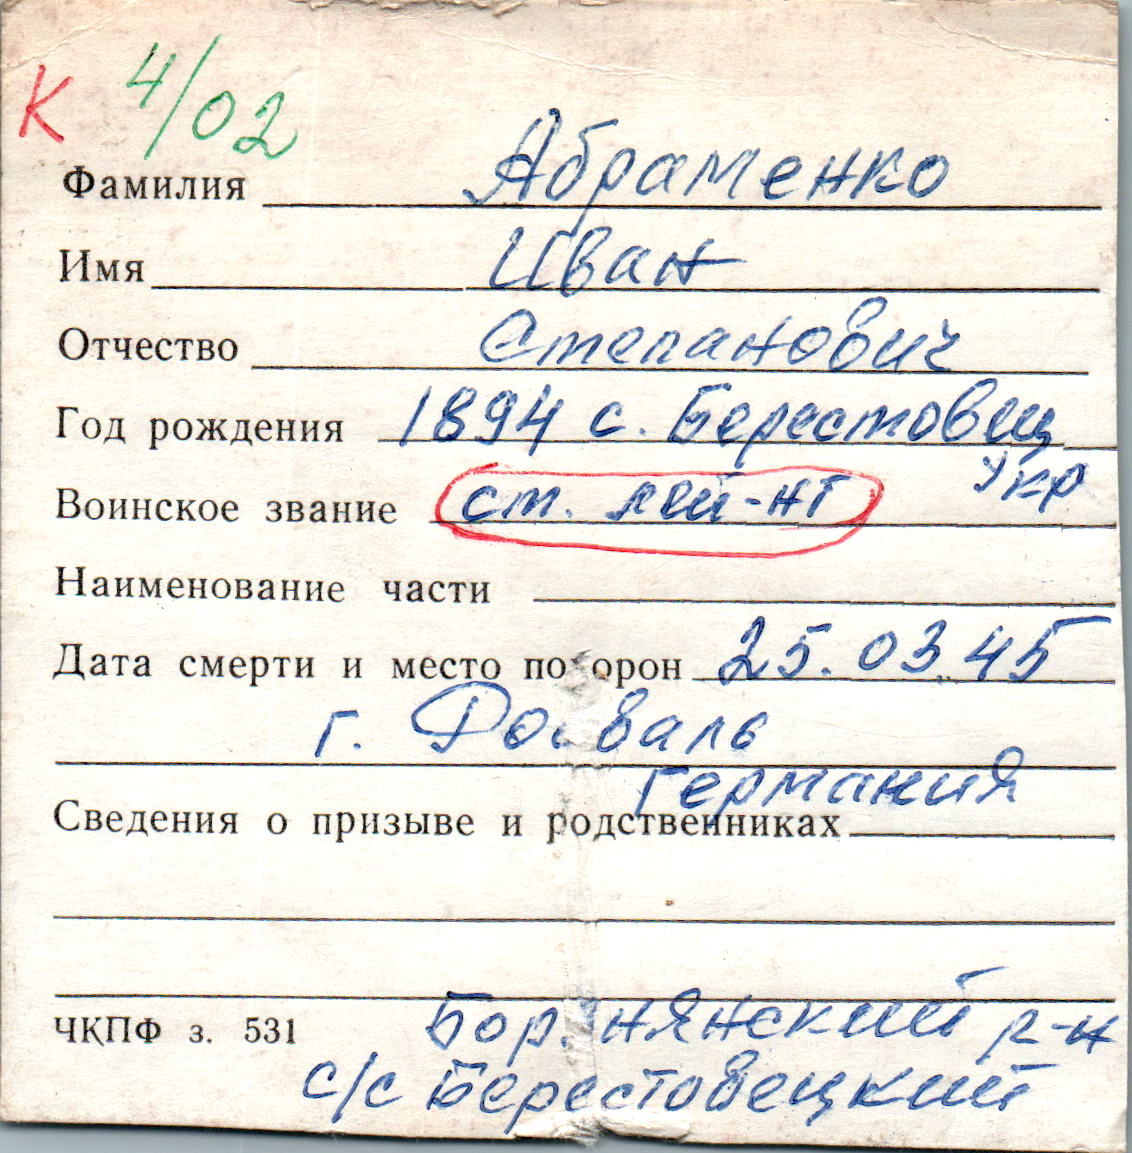 К 4/02
Фамилия Абраменко
Имя Иван
Отчество Степанович
Год рождения 1894 с. Берестовец
Укр
Воинское звание ст. лей-нт
Наименование части
Дата смерти и место похорон 25.03.45
г.
Германия
Сведения о призыве и родственниках
ЧКПФ з. 531
р-н
с/с Берестовецкий